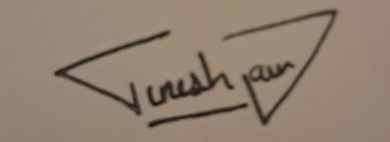 Vinesh Jain